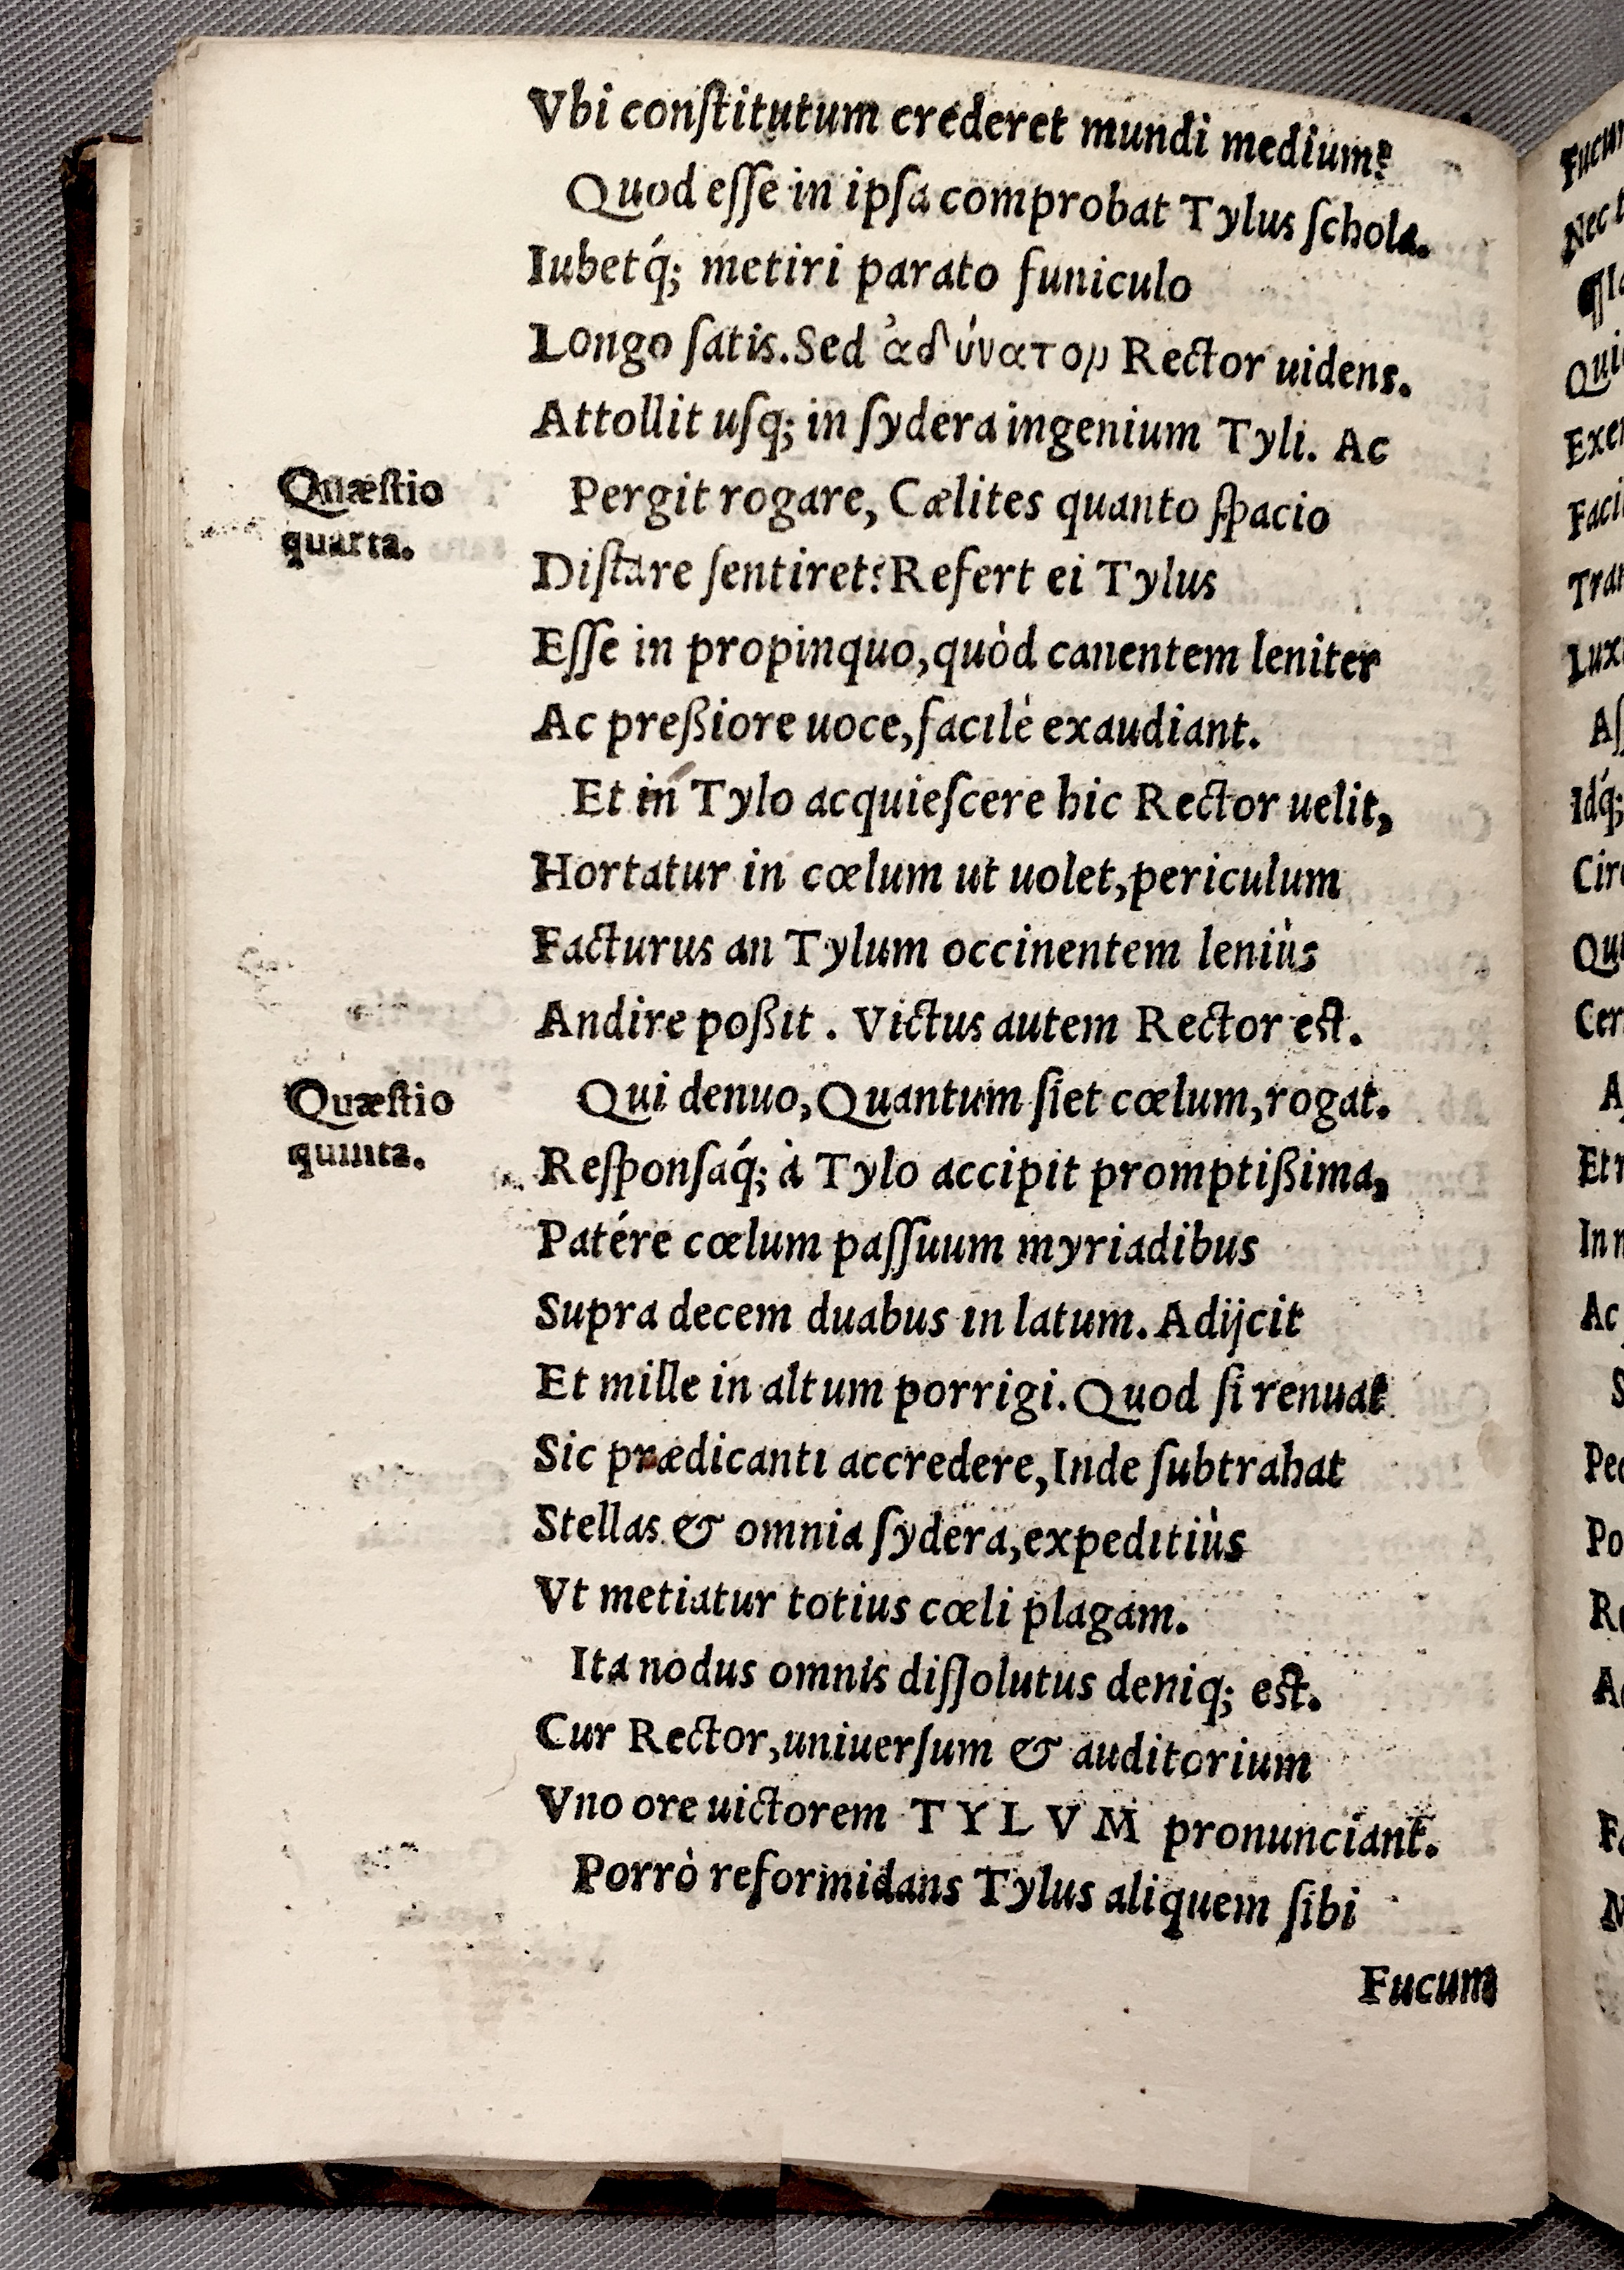 Vbi conſtitutum crederet mundi medium?
Quod eſſe in ipſa comprobat Tylus ſchola.
Iubetq́; metiri parato funiculo
Longo ſatis. Sed ἀδύνατον Rector uidens.
Attollit uſq; in ſydera ingenium Tyli. Ac
Quæſtio
quarta.
Pergit rogare, Cælites quanto ſpacio
Diſtare ſentiret? Refert ei Tylus
Eſſe in propinquo, quòd canentem leniter
Ac preßiore uoce, facilè exaudiant.
Et in Tylo acquieſcere hic Rector uelit,
Hortatur in cœlum ut uolet, periculum
Facturus an Tylum occinentem leniùs
Andire poßit. Victus autem Rector eſt.
Quæſtio
quinta.
Qui denuo, Quantum ſiet cœlum, rogat.
Reſponſaq́; à Tylo accipit promptißima,
Patére cœlum paſſuum myriadibus
Supra decem duabus in latum. Adijcit
Et mille in altum porrigi. Quod ſi renuat
Sic prædicanti accredere, Inde ſubtrahat
Stellas & omnia ſydera, expeditiùs
Vt metiatur totius cœli plagam.
Ita nodus omnis diſſolutus deniq; eſt.
Cur Rector, uniuerſum & auditorium
Vno ore uictorem TYLVM pronunciant.
Porrò reformidans Tylus aliquem ſibi
Fucum
Nec
Qui
Lux
Idq́;
Cir
Cer
A
Et
In
Ac
S
Po